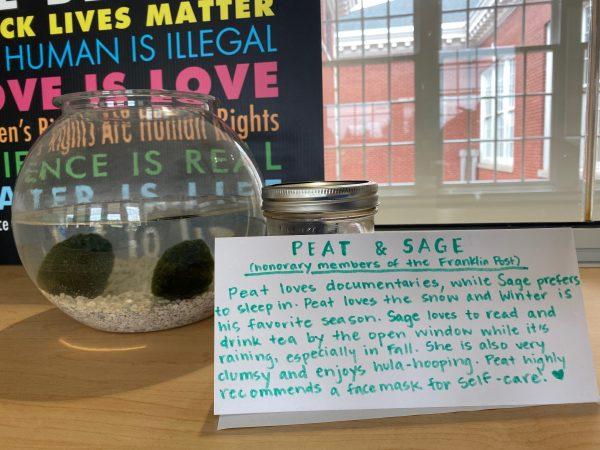 CK LIVES MATTER
HUMAN IS ILLEGAL
OVE IS LOVE
en's Rights Are Human Rights
IENCE IS REAL
ATER IS LIFE
PEAT & SAGE
(honorary members of the Franklin Post)
Peat loves documentaries, while Sage prefers
to sleep in. Peat loves the snow and Winter is
his favorite season. Sage loves to read and
drink tea by the open window while it's
raining, especially in Fall. She is also very
clumsy and enjoys hula-hooping. Peat highly
recommends a face mask for self-care! ♥